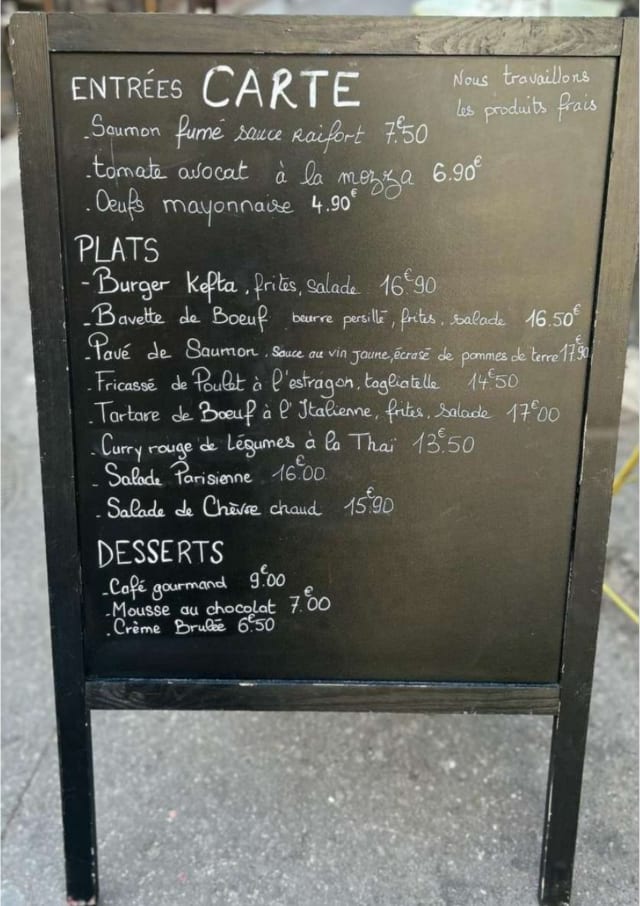 ENTRÉES CARTE
Nous travaillons
les produits frais
- Saumon fumé sauce raifort 7€50
- tomate avocat à la mozza 6.90€
- Oeufs mayonnaise 4.90€
PLATS
- Burger Kefta, frites, salade 16€90
- Bavette de Boeuf beurre persillé, frites, salade 16.50€
- Pavé de Saumon, sauce au vin jaune, écrasé de pommes de terre 17€90
- Fricassé de Poulet à l'estragon, tagliatelle 14€50
- Tartare de Boeuf à l'Italienne, frites, salade 17€00
- Curry rouge de Légumes à la Thaï 13€50
- Salade Parisienne 16€00
- Salade de Chèvre chaud 15€90
DESSERTS
- Café gourmand 9€00
- Mousse au chocolat 7€00
- Crème Brulée 6€50